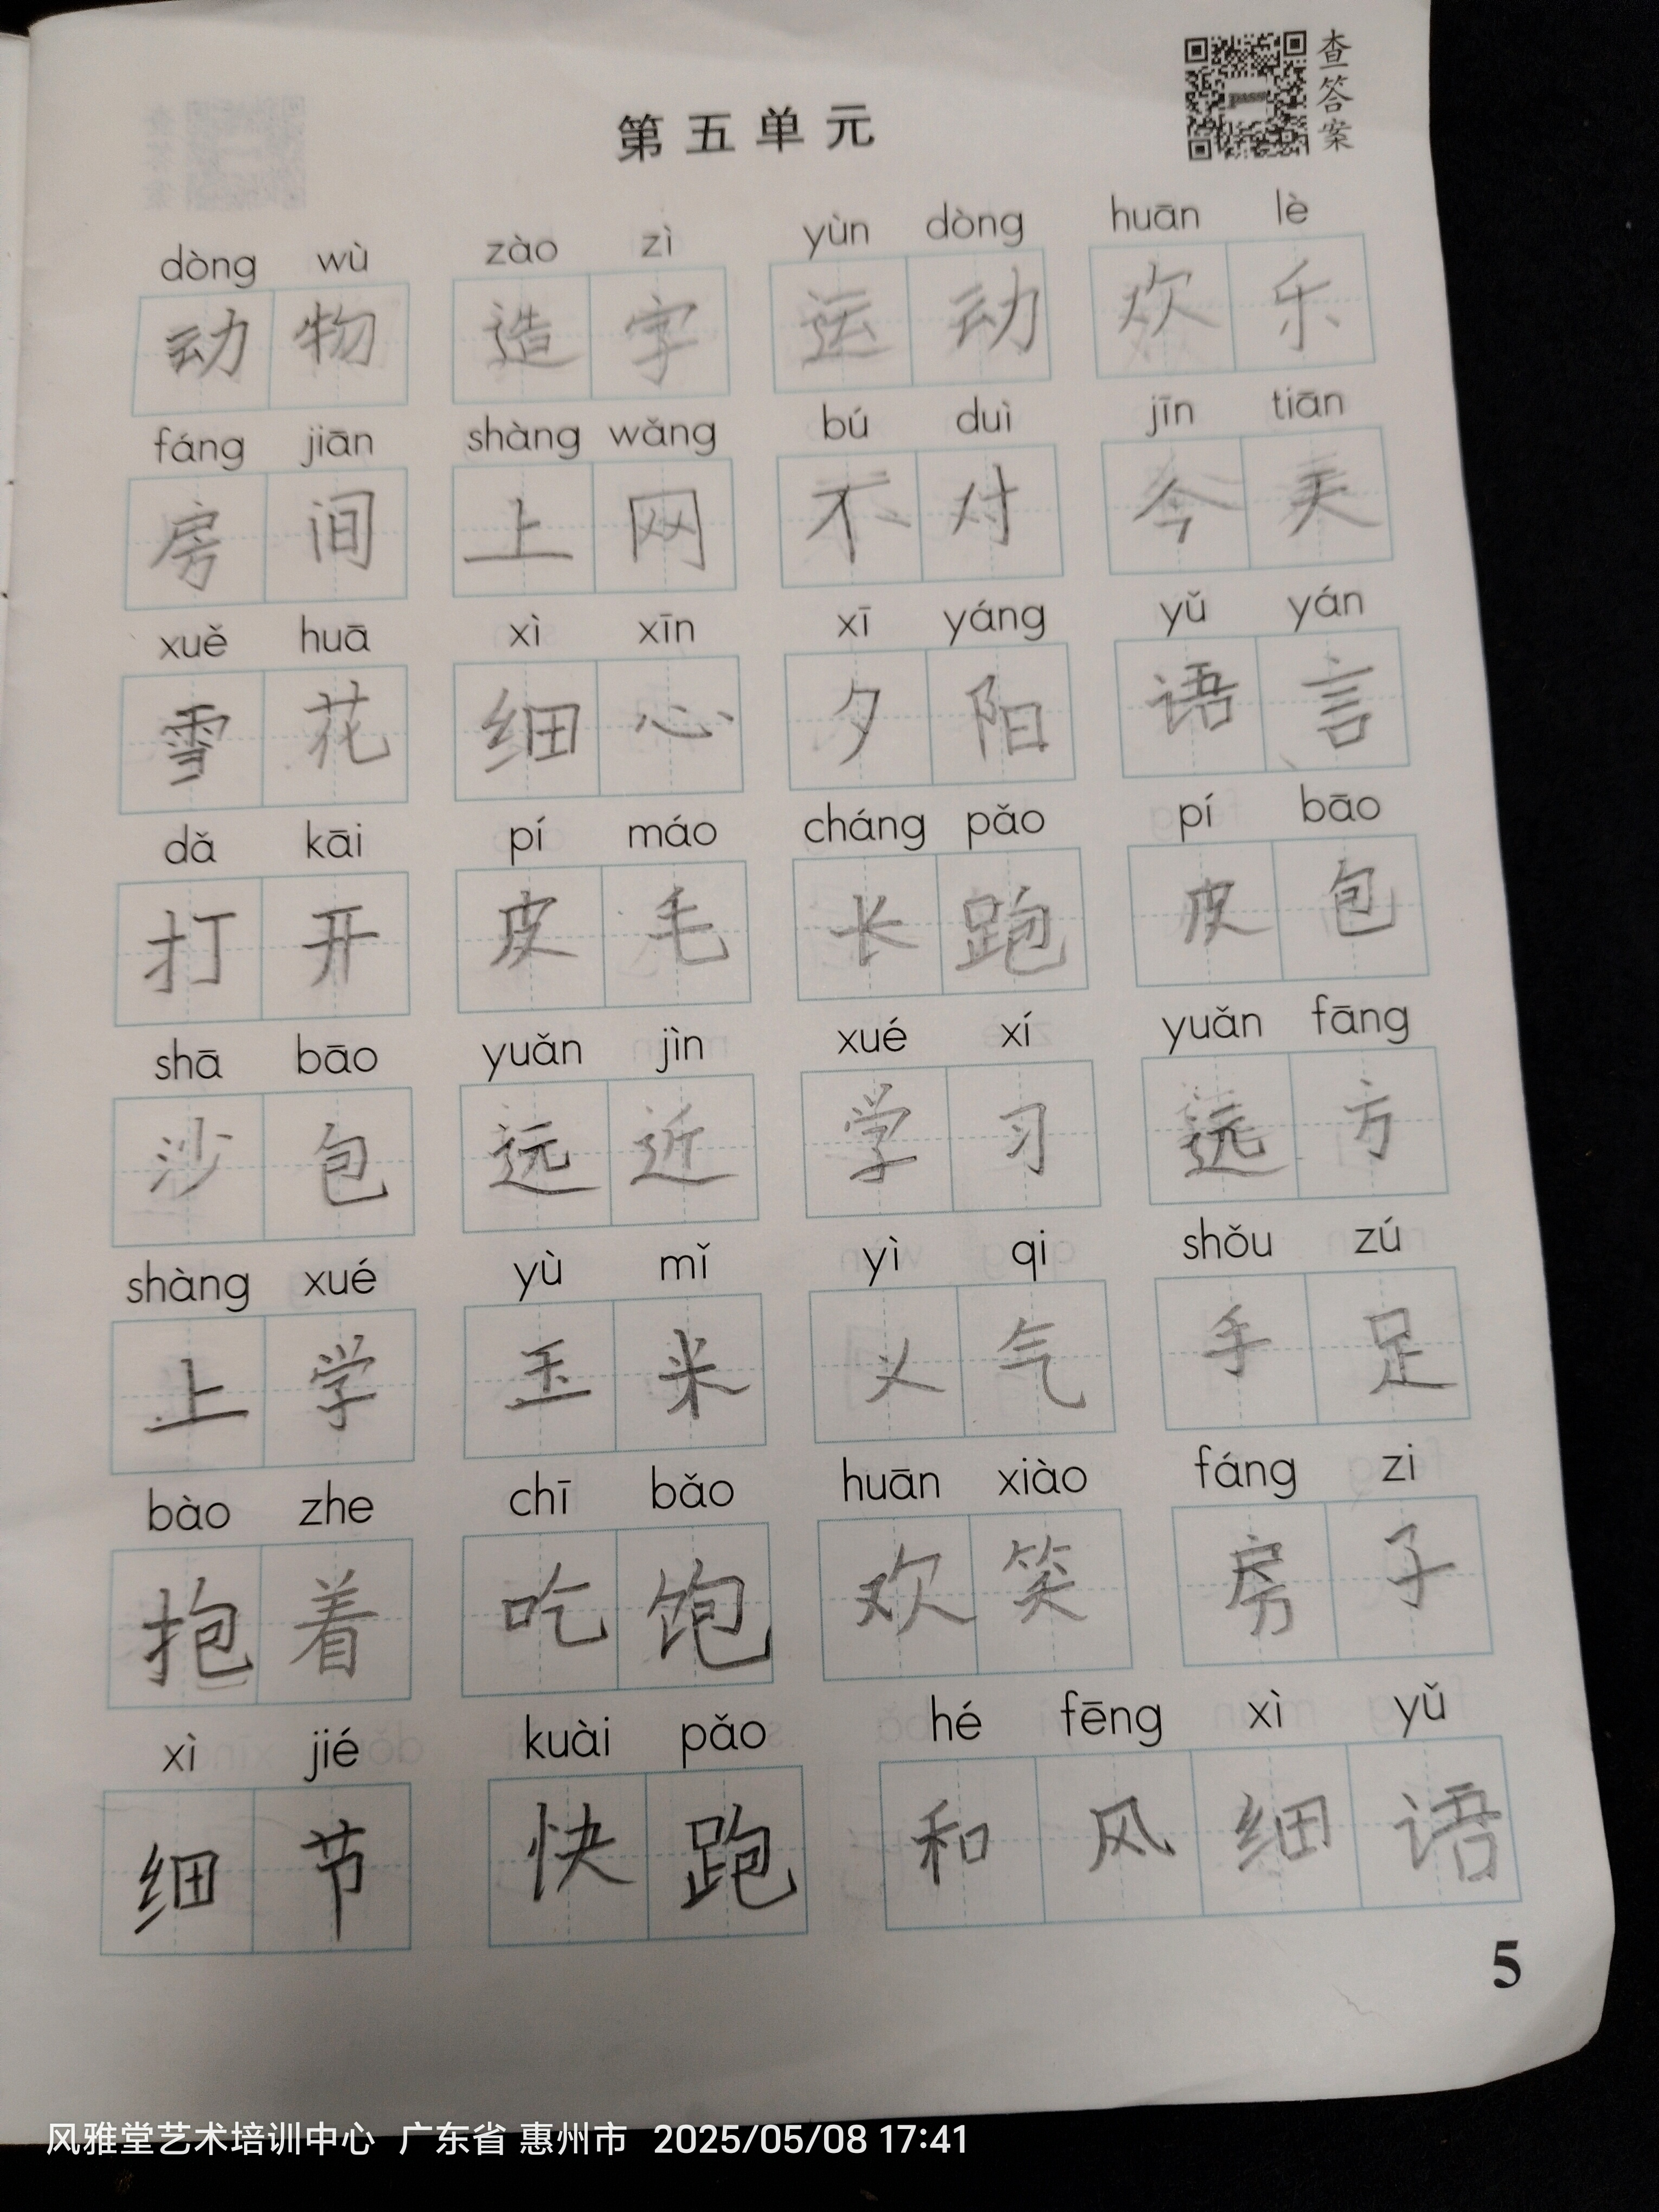 查答案
第五单元
dòng wù zào zì yùn dòng huān lè
动物 造字 运动 欢乐
fáng jiān shàng wǎng bú duì jīn tiān
房间 上网 不对 今天
xuě huā xì xīn xī yáng yǔ yán
雪花 细心 夕阳 语言
dǎ kāi pí máo cháng pǎo pí bāo
打开 皮毛 长跑 皮包
shā bāo yuǎn jìn xué xí yuǎn fāng
沙包 远近 学习 远方
shàng xué yù mǐ yì qi shǒu zú
上学 玉米 义气 手足
bào zhe chī bǎo huān xiào fáng zi
抱着 吃饱 欢笑 房子
xì jié kuài pǎo hé fēng xì yǔ
细节 快跑 和风细语
5
风雅堂艺术培训中心 广东省 惠州市 2025/05/08 17:41